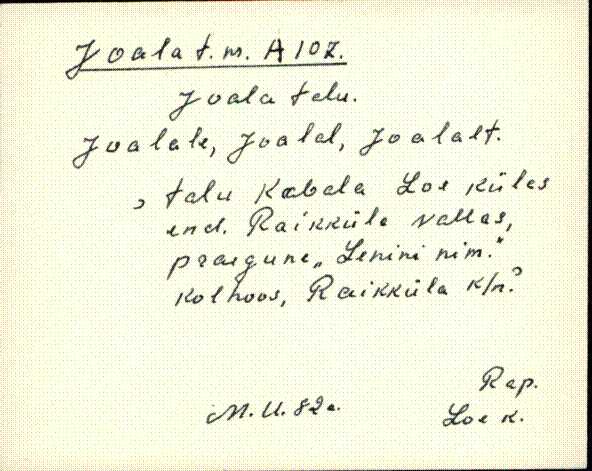 Joala t. m. A 107.
Joala talu.
Joalale, Joalal, Joalalt.
, talu Kabala Loe külas
end. Raikküla vallas,
praegune „Lenini nim."
kolhoos, Raikküla k/n.
Rap.
M. U. 82a. Loe k.